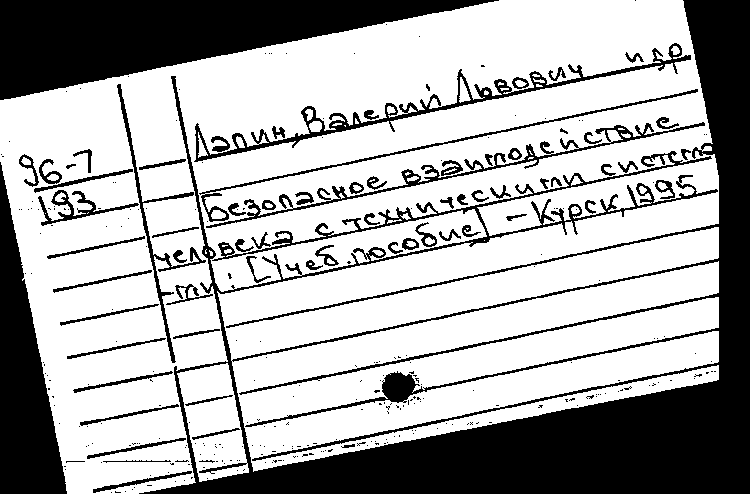 96-7
193
Лапин, Валерий Львович и др
Безопасное взаимодействие
человека с техническими система
-ми: [Учеб. пособие] - Курск, 1995